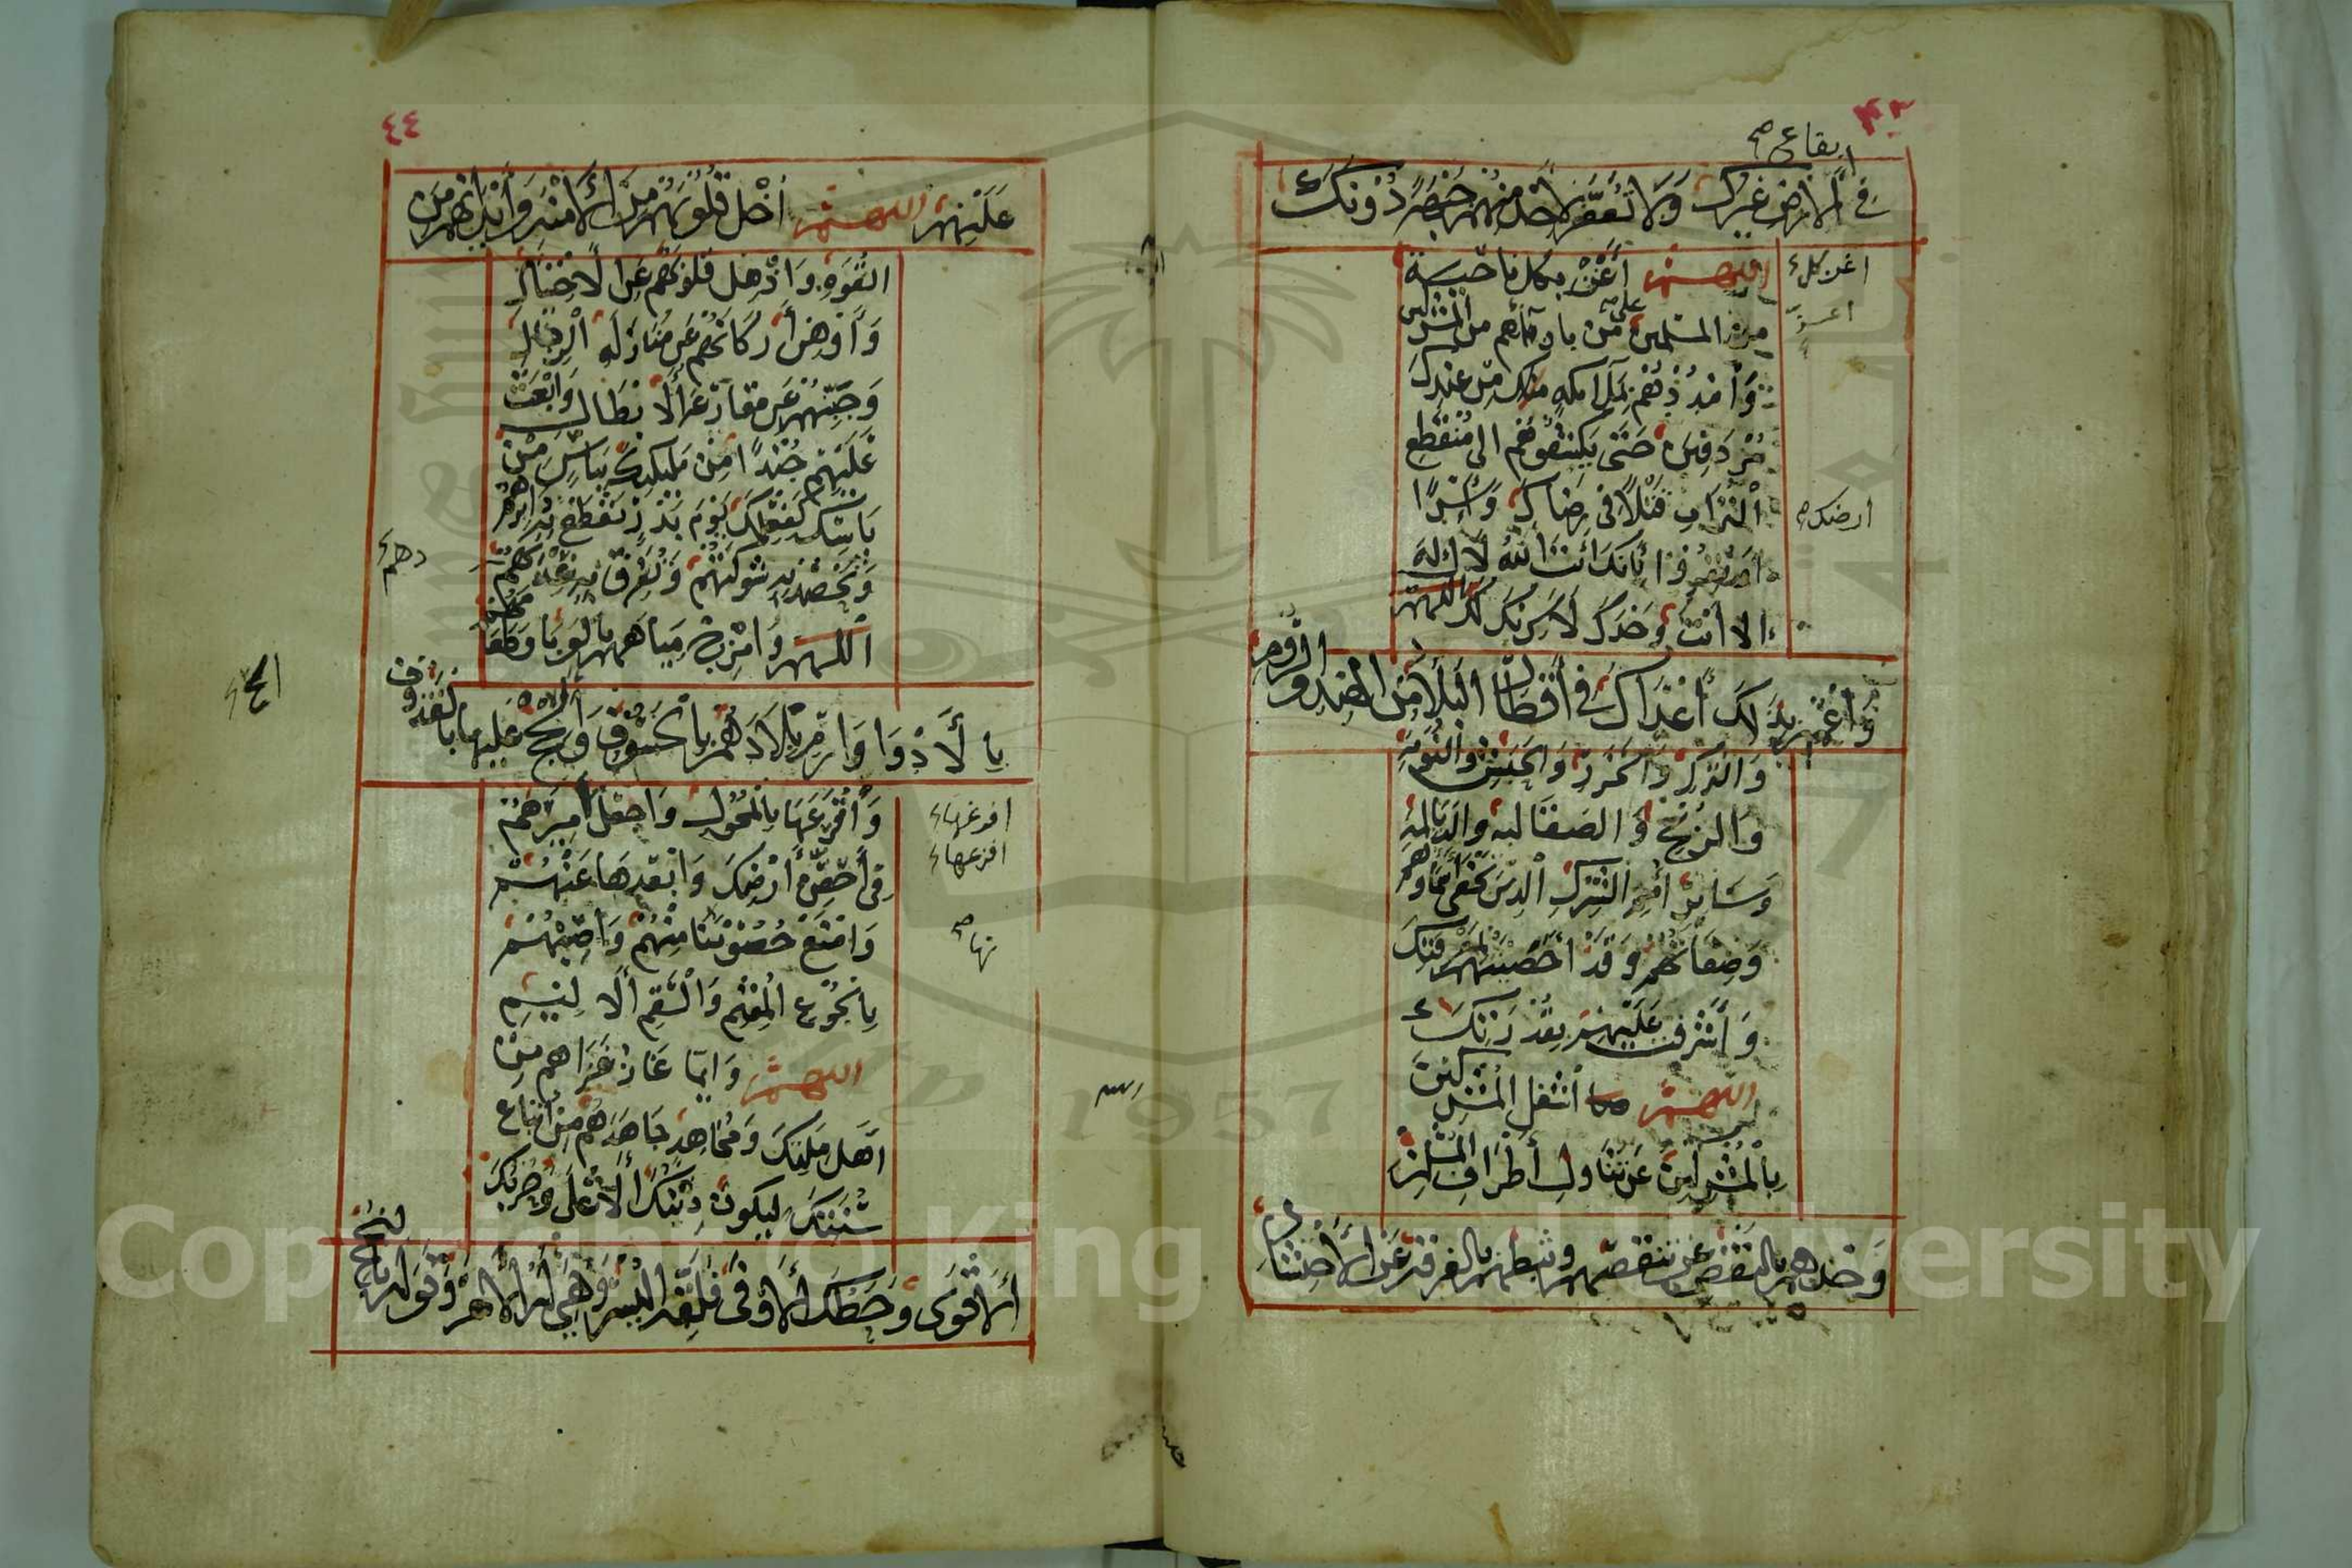 ٤٣
بقاع صح
في الارض غيرك وَلا تُعَفَّرَ لاحد منهم جبهة دُونَكَ
اللهم أغز بكل ناحية
من المسلمين على من بازائهم من المشركين
وَأمْدِدْهُم بملائكة منك من عندك
مُرْدِفينَ حَتَّى يكشفوهم الى مُنْقَطَعِ
التُّرابِ قتلاً في رضاك وَأسْرًا
أو يقروا بِأنَّكَ أنْتَ اللهُ لا إله
الا أنت وَحْدَكَ لا شريك لك اللهم
وَاعْمُمْ بِذَلِكَ أعْدَاكَ في أقطار البلاد من الهند والرُّومِ
وَالتركِ وَالخزر وَالحَبَش والنُّوبَةِ
وَالزنج وَالصقَالبة والديالمة
وَسَائر أُمَمِ الشِّرك الذين تخفى أسماؤهم
وَصفاتهم وَقَدْ أحصيتهم بمعرفتك
وَأشرفت عَلَيْهِم بقدرتك
اللهم اشغل المُشركينَ
بالمُشركين عَن تنَاول أطرَافِ المُسلمين
وَخذهم بالنقص عن تنقصهم وثبطهم بالفرقة عن الاحتشاد
اغز كل
ارضك
٤٤
عَلَيْهِم اللهم أخْلِ قُلُوبَهُم مِنَ الأمَنَةِ وَأبْدَانهم من
القُوَّةِ وَأذهل قلوبهم عن الاحتيال
وَأوهن أركانهم عن منَازَلَةِ الرجال
وَجَبِّنْهم عن مقارعة الأبطال وَابْعَثْ
عَلَيْهِم جُنْدًا مِنْ مَليكتك ببأس مِنْ
بَأسِك كفعلك يَوْمَ بَدْرٍ تقطع به دابرهم
وَتَحْصُد به شوكتهم وَتُفَرِّق به عددهم
اللهم وَامْزج مياههم بالوَبَا وَاطعمتهم
بالأدْوَا وَارم بلادهم بالخُسُوفِ وَألح عَلَيها بالقُذُوف
وَأفْرعهَا بالمُحُولِ وَاجعَل مِيَرَهُمْ
في أحَصِّ أرْضِكَ وَأبْعَدِهَا عَنْهُمْ
وَامْنَعْ حُصُونَنَا مِنْهُمْ وَأصِبْهُمْ
بالجُوعِ المُقيم وَالسَّقم الأليمِ
اللهم وَايما غاز غزاهم من
أهل ملتك وَمجَاهد جاهَدَهُم من أتباع
سُنَّتِكَ ليكونَ دينك الأعلى وَحزبك
الأقوَى وَحَظك الأوفى فلقه اليُسْرَ وَهَيّ له الأمر وَتَوَله بالنجح
دهم
الح
افرغها
افزعها
نها صح